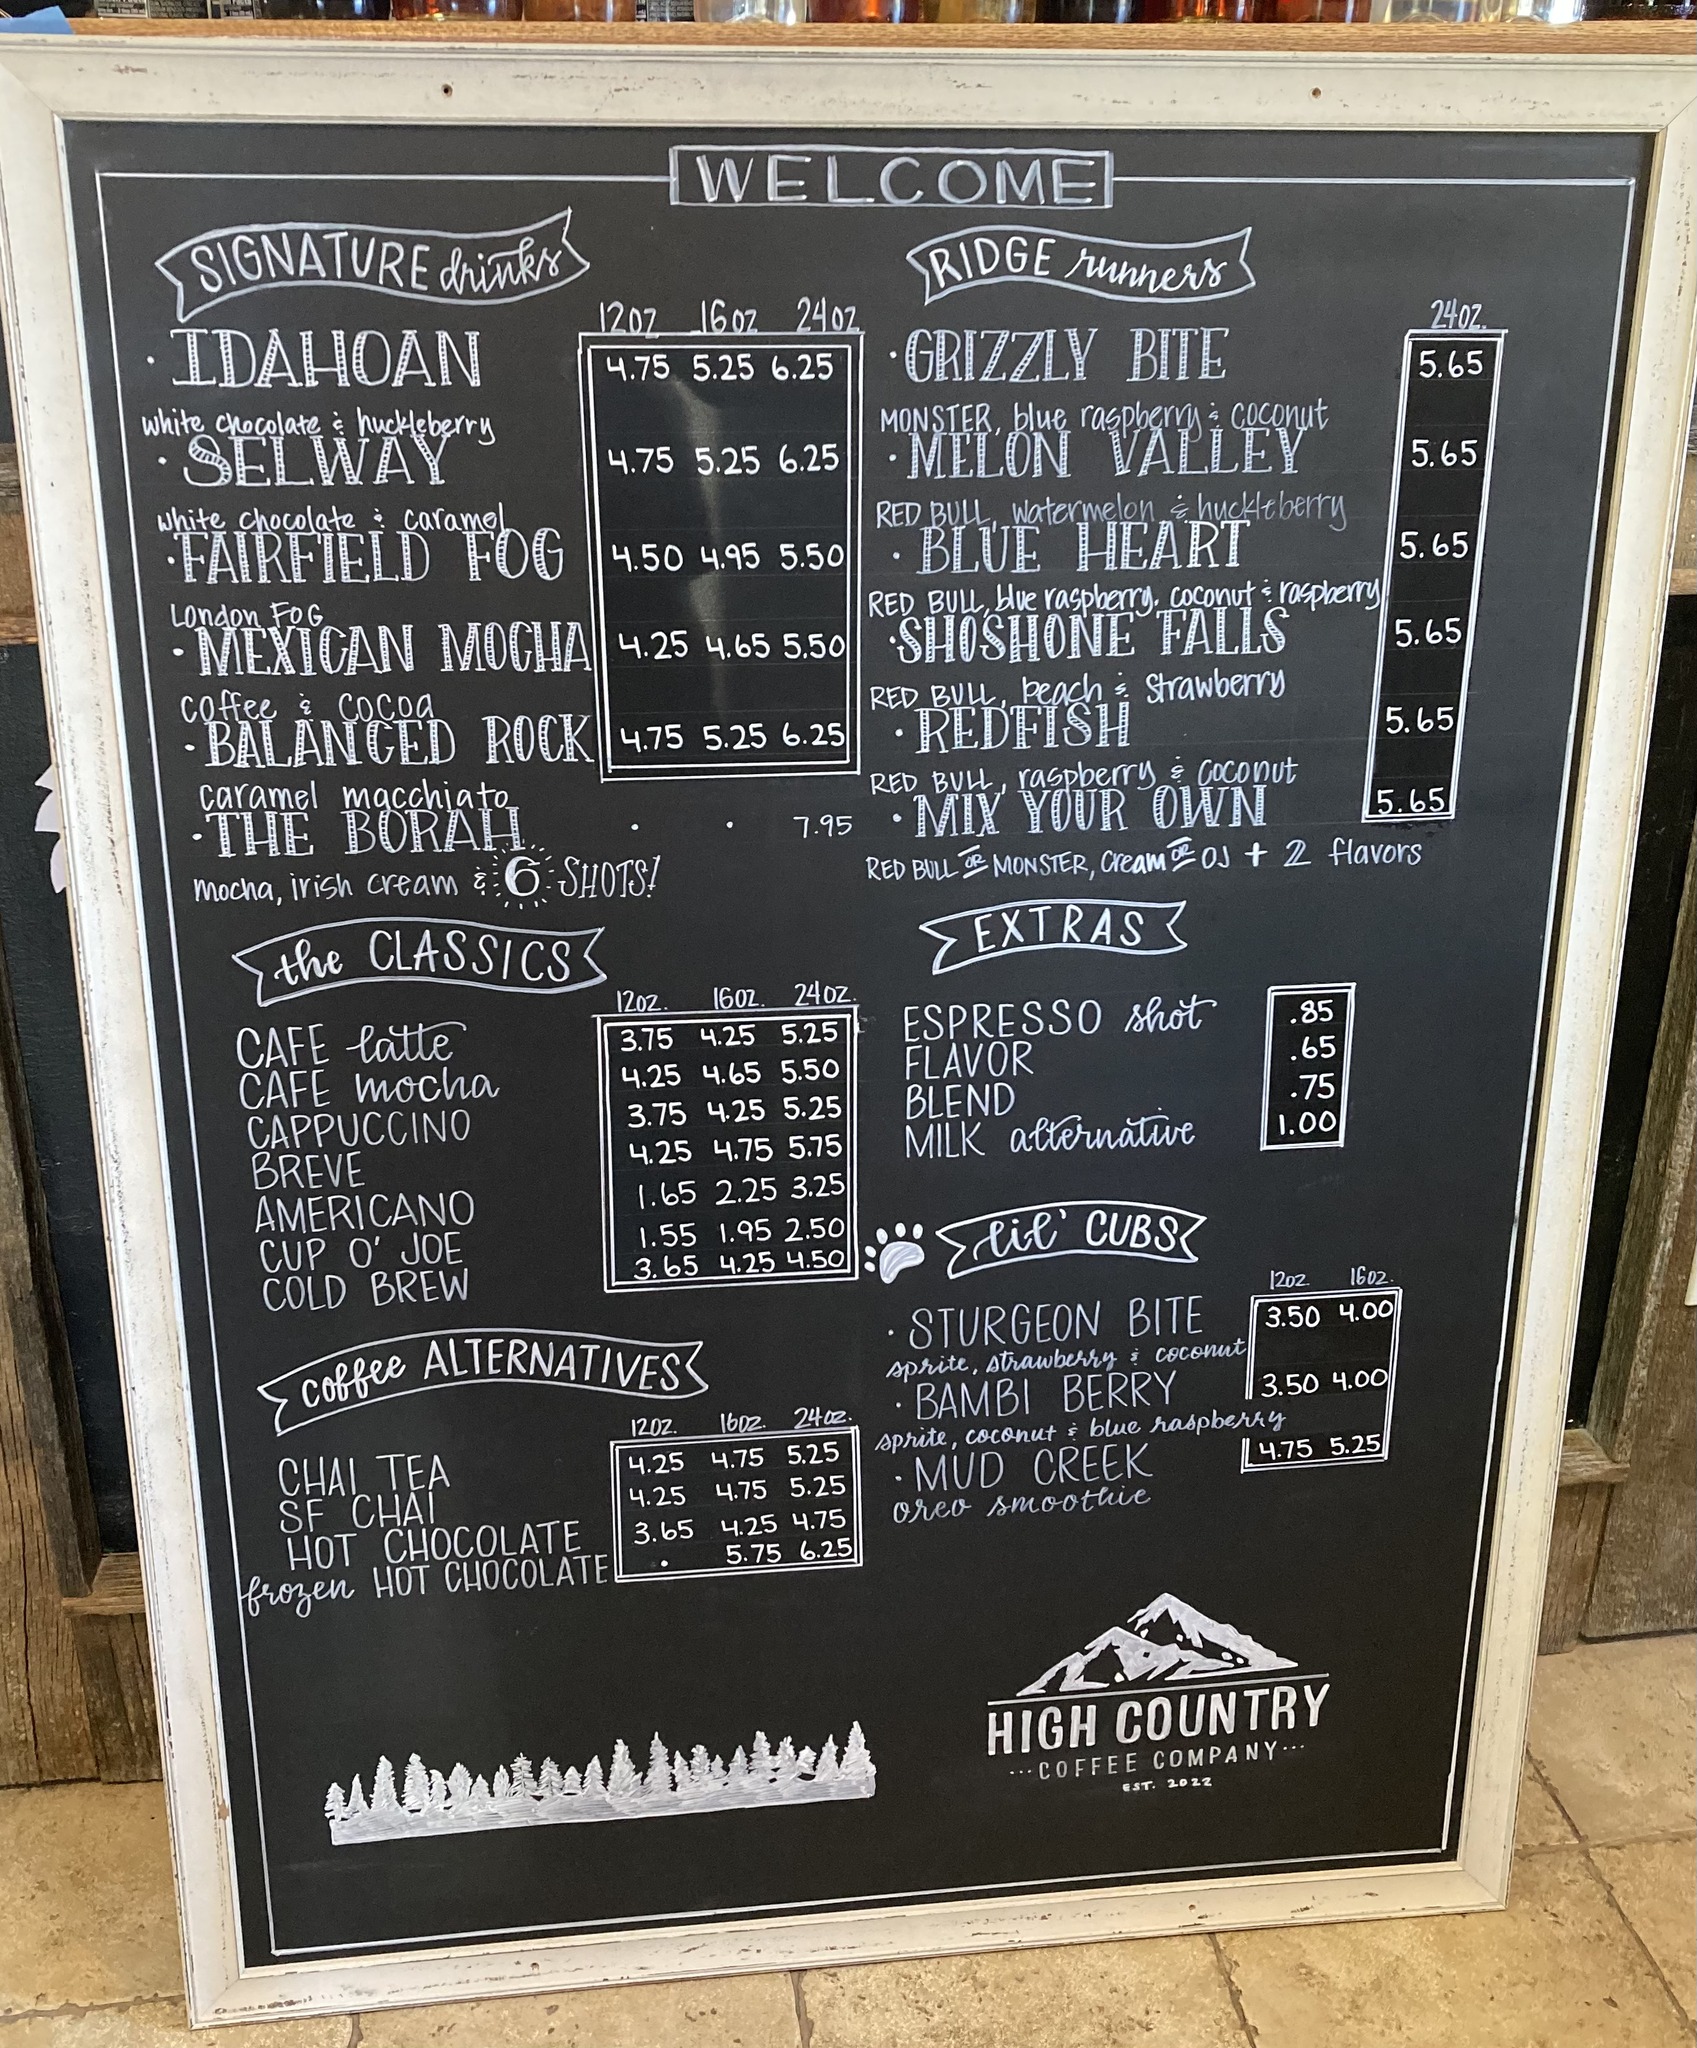 WELCOME
SIGNATURE drinks
12OZ 16OZ 24OZ
· IDAHOAN 4.75 5.25 6.25
white chocolate & huckleberry
· SELWAY 4.75 5.25 6.25
white chocolate & caramel
· FAIRFIELD FOG 4.50 4.95 5.50
London FOG
· MEXICAN MOCHA 4.25 4.65 5.50
coffee & cocoa
· BALANCED ROCK 4.75 5.25 6.25
caramel macchiato
· THE BORAH · · 7.95
mocha, irish cream & 6 SHOTS!
the CLASSICS
12OZ. 16OZ. 24OZ.
CAFE latte 3.75 4.25 5.25
CAFE mocha 4.25 4.65 5.50
CAPPUCCINO 3.75 4.25 5.25
BREVE 4.25 4.75 5.75
AMERICANO 1.65 2.25 3.25
CUP O' JOE 1.55 1.95 2.50
COLD BREW 3.65 4.25 4.50
coffee ALTERNATIVES
12OZ. 16OZ. 24OZ.
CHAI TEA 4.25 4.75 5.25
SF CHAI 4.25 4.75 5.25
HOT CHOCOLATE 3.65 4.25 4.75
frozen HOT CHOCOLATE · 5.75 6.25
RIDGE runners
24OZ.
· GRIZZLY BITE 5.65
MONSTER, blue raspberry & coconut
· MELON VALLEY 5.65
RED BULL, watermelon & huckleberry
· BLUE HEART 5.65
RED BULL, blue raspberry, coconut & raspberry
· SHOSHONE FALLS 5.65
RED BULL, peach & strawberry
· REDFISH 5.65
RED BULL, raspberry & coconut
· MIX YOUR OWN 5.65
RED BULL OR MONSTER, cream OR OJ + 2 flavors
EXTRAS
ESPRESSO shot .85
FLAVOR .65
BLEND .75
MILK alternative 1.00
lil' CUBS
12OZ. 16OZ.
· STURGEON BITE 3.50 4.00
sprite, strawberry & coconut
· BAMBI BERRY 3.50 4.00
sprite, coconut & blue raspberry
· MUD CREEK 4.75 5.25
oreo smoothie
HIGH COUNTRY
···COFFEE COMPANY···
EST. 2022